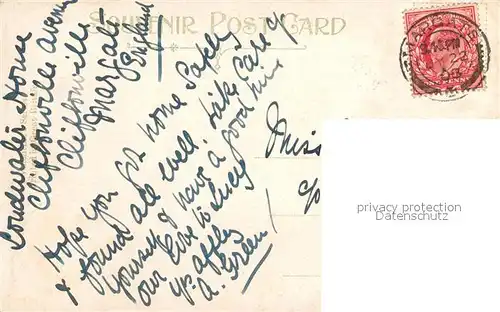 SOUVENIR POST CARD
Loudwater House
Cliftonville Avenue
Cliftonville
Margate
England
Hope you got home safely
& found all well take care of
yourself & have a good time
our love to Lucy
yrs affly
A. Green
Miss
c/o
privacy protection
Datenschutz